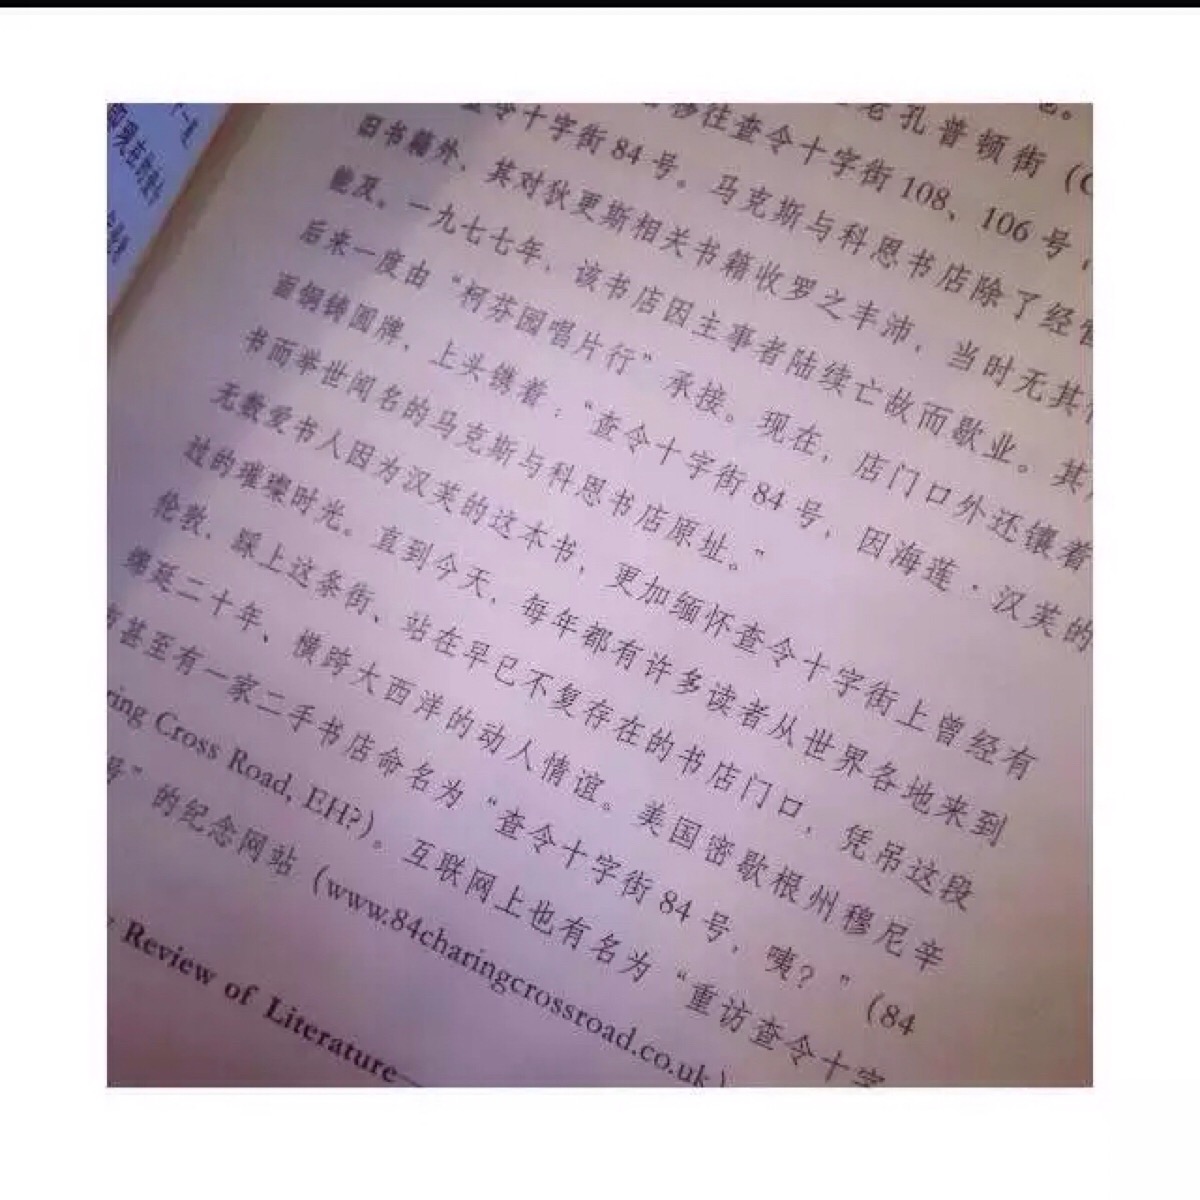 老孔普顿街（
移往查令十字街 108、106 号，
令十字街 84 号。马克斯与科恩书店除了经营
旧书籍外，其对狄更斯相关书籍收罗之丰沛，当时无其
能及。一九七七年，该书店因主事者陆续亡故而歇业。其
后来一度由“柯芬园唱片行”承接。现在，店门口外还镶着
面铜铸圆牌，上头镌着：“查令十字街 84 号，因海莲·汉芙的
书而举世闻名的马克斯与科恩书店原址。”
无数爱书人因为汉芙的这本书，更加缅怀查令十字街上曾经有
过的璀璨时光。直到今天，每年都有许多读者从世界各地来到
伦敦，踩上这条街、站在早已不复存在的书店门口，凭吊这段
绵延二十年、横跨大西洋的动人情谊。美国密歇根州穆尼辛
甚至有一家二手书店命名为“查令十字街 84 号，咦？”（84
ring Cross Road, EH?）。互联网上也有名为“重访查令十字
号”的纪念网站（www.84charingcrossroad.co.uk）
Review of Literature—